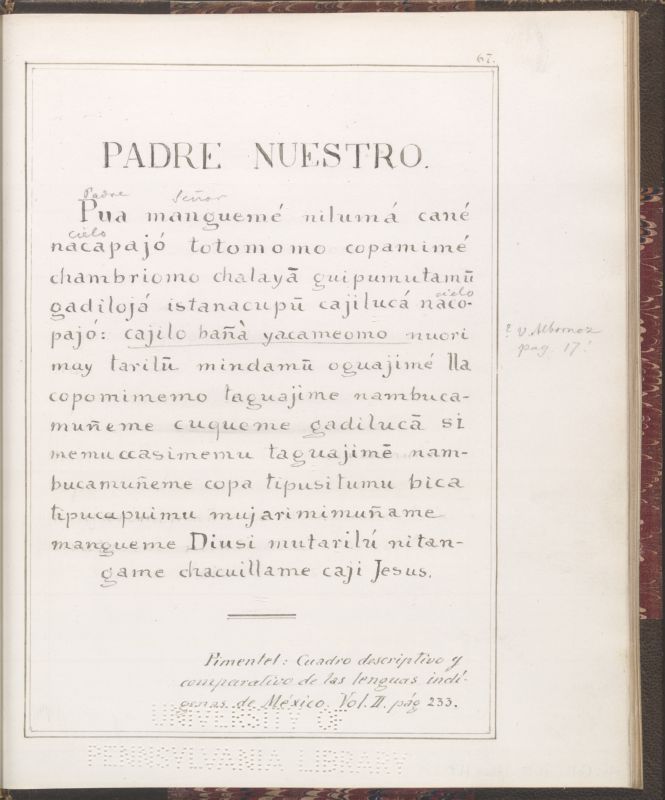 67.
PADRE NUESTRO.
Padre Señor
Pua manguemé nilumá cané
cielo
nacapajó totomomo copamimé
chambriomo chalayā guipumutamū
gadilojó istanacupū cajilucá naco-
cielo
pajó: cajilo bañà yacameomo nuori
may tarilū mindamū oguajimé lla
copomimemo taguajime nambuca-
muñeme cuqueme gadilucā si
memuccasimemu taguajimē nam-
bucamuñeme copa tipusitumu bica
tipucapuimu mujarimimuñame
mangueme Diusi mutarilú nitan-
game chacuillame caji Jesus.
? v. Albornoz
pag. 17!
Pimentel: Cuadro descriptivo y
comparativo de las lenguas indí-
genas de México. Vol. II. pág 233.
UNIVERSITY OF
PENNSYLVANIA LIBRARY